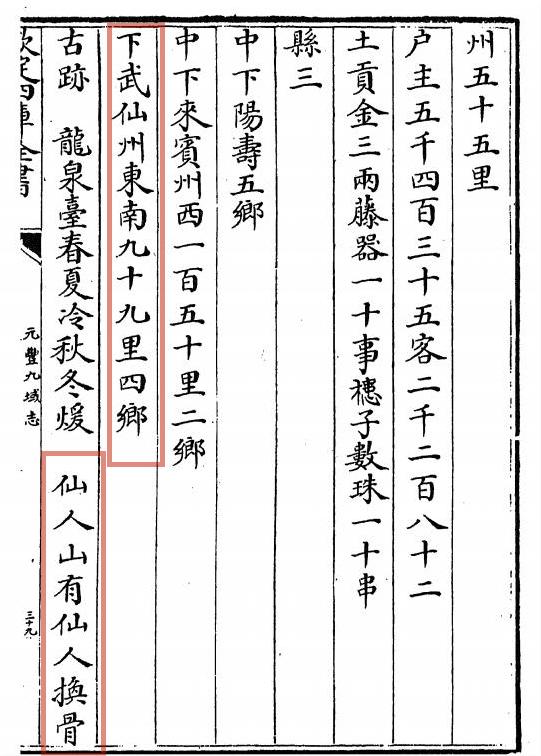 州五十五里
户主五千四百三十五客二千二百八十二
土貢金三兩藤器一十事槵子數珠一十串
縣三
中下陽壽五鄉
中下來賓州西一百五十里二鄉
下武仙州東南九十九里四鄉
古跡　龍泉臺春夏冷秋冬煖　仙人山有仙人換骨
欽定四庫全書
元豐九域志
三十九